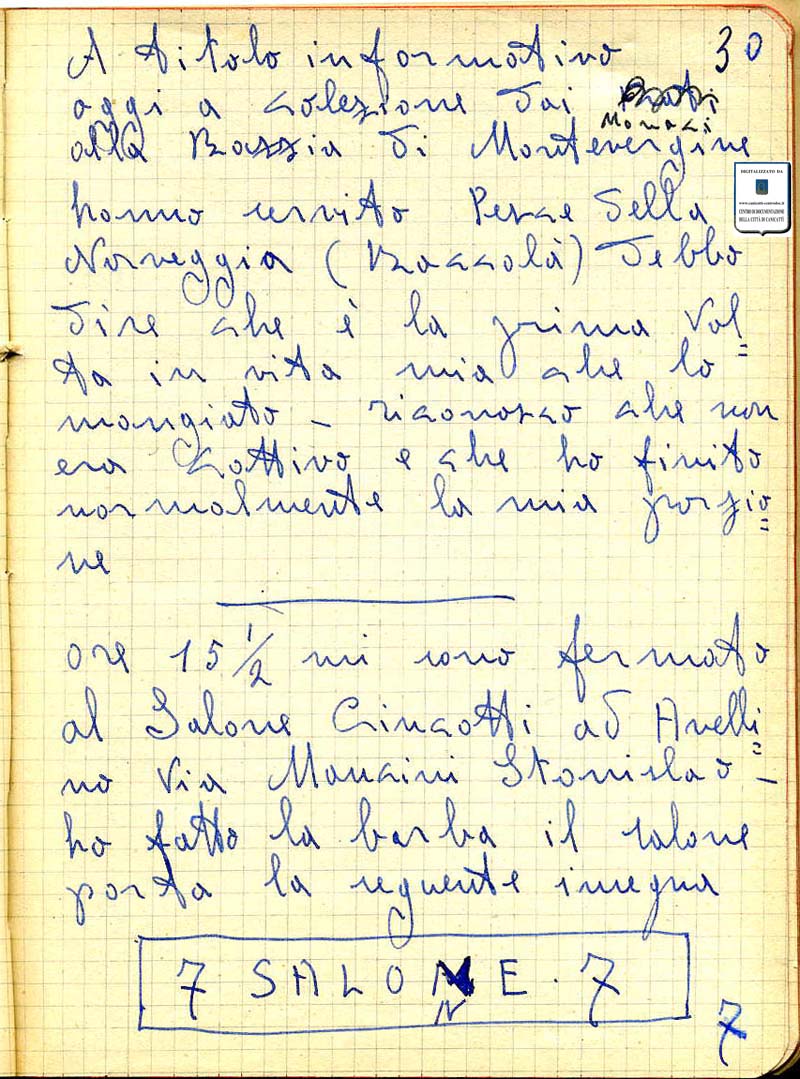 30
A titolo informativo
oggi a colezione dai
Monaci
alla Bazzia di Montevergine
hanno servito Pesce della
Norveggia (Baccolà) debbo
dire che è la prima Vol=
ta in vita mia che lo
mangiato - riconosco che non
era cattivo e che ho finito
normalmente la mia porzio=
ne
ore 15 1/2 mi sono fermato
al Salone Cincotti ad Avelli=
no Via Mancini Stanislao -
ho fatto la barba il salone
porta la seguente insegna
7 SALONE . 7
N
7
DIGITALIZZATO DA
CENTRO DI DOCUMENTAZIONE
DELLA CITTÀ DI CANICATTÌ